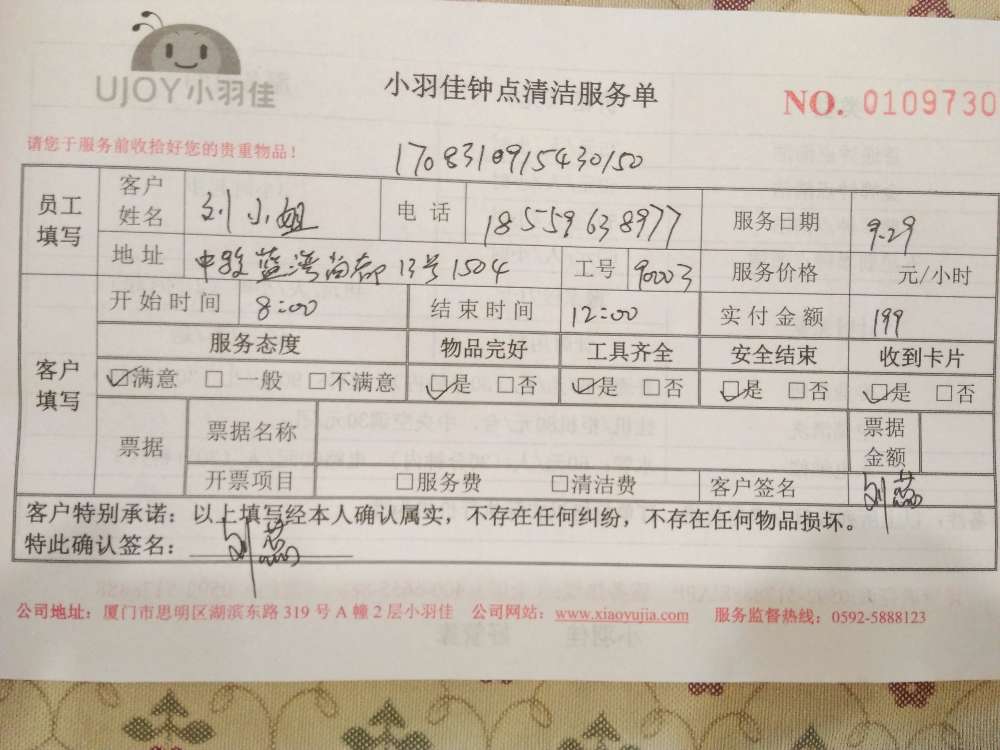 UJOY小羽佳
小羽佳钟点清洁服务单
NO. 0109730
请您于服务前收拾好您的贵重物品!
1708310915430150
员工填写 客户姓名 刘小姐 电话 18559638977 服务日期 9.29
地址 中骏蓝湾尚都13号1504 工号 90003 服务价格 元/小时
开始时间 8:00 结束时间 12:00 实付金额 199
客户填写 服务态度 物品完好 工具齐全 安全结束 收到卡片
☑满意 □一般 □不满意 ☑是 □否 ☑是 □否 ☑是 □否 ☑是 □否
票据 票据名称 票据金额
开票项目 □服务费 □清洁费 客户签名 刘蕊
客户特别承诺:以上填写经本人确认属实,不存在任何纠纷,不存在任何物品损坏。
特此确认签名: 刘蕊
公司地址:厦门市思明区湖滨东路319号A幢2层小羽佳 公司网站:www.xiaoyujia.com 服务监督热线:0592-5888123